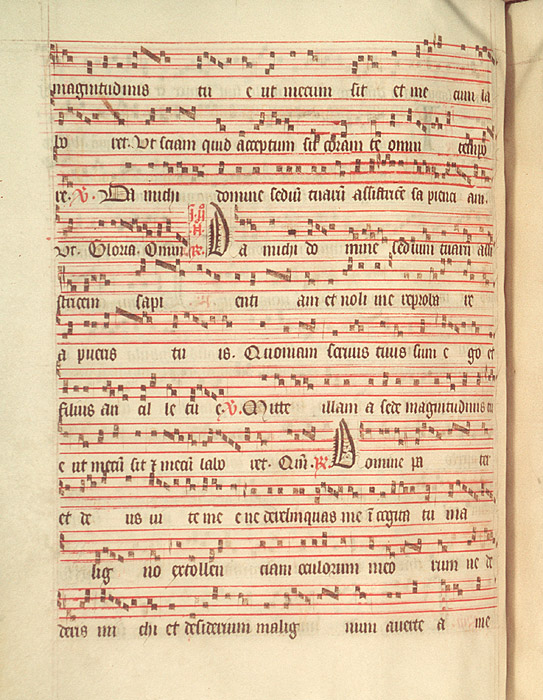 magnitudinis tu e ut mecum sit et me cum la
bo ret. Ut sciam quid acceptum sit coram te omni tempo
re. V. Da michi domine sediū tuarū assistricē sa pienti am.
Ut. Gloria. Omni R. Da michi do mine sedium tuarū assi
stricem sapi enti am et noli me reproba re
a pueris tu is. Quoniam servus tuus sum e go et
filius an cil le tu e. V. Mitte illam a sede magnitudinis tu
e ut mecū sit et mecū labo ret. Qm̄. R. Domine pa ter
et de us vi te me e ne derelinquas me ī cogita tu ma
lig no extollen ciam oculorum meo rum ne de
deris mi chi et desiderium malig num averte a me